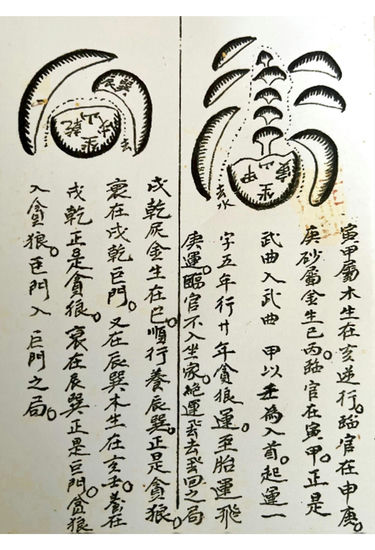 去水
寅甲屬木生在亥逆行。臨官在申庚。
庚砂屬金生巳丙。臨官在寅。甲正是
武曲入武曲 甲以壬為入首。起運一
字五年行廿年貪狼運。至胎運飛
庚運。臨官不入坐家絕運飛去飛回之局
去
戌乾金生在巳。順行養辰巽。正是貪狼。
衰在戌乾巨門。又在辰巽木生在亥壬。養在
戌乾正是貪狼。衰在辰巽正是巨門。貪狼
入貪狼。巨門入巨門之局。